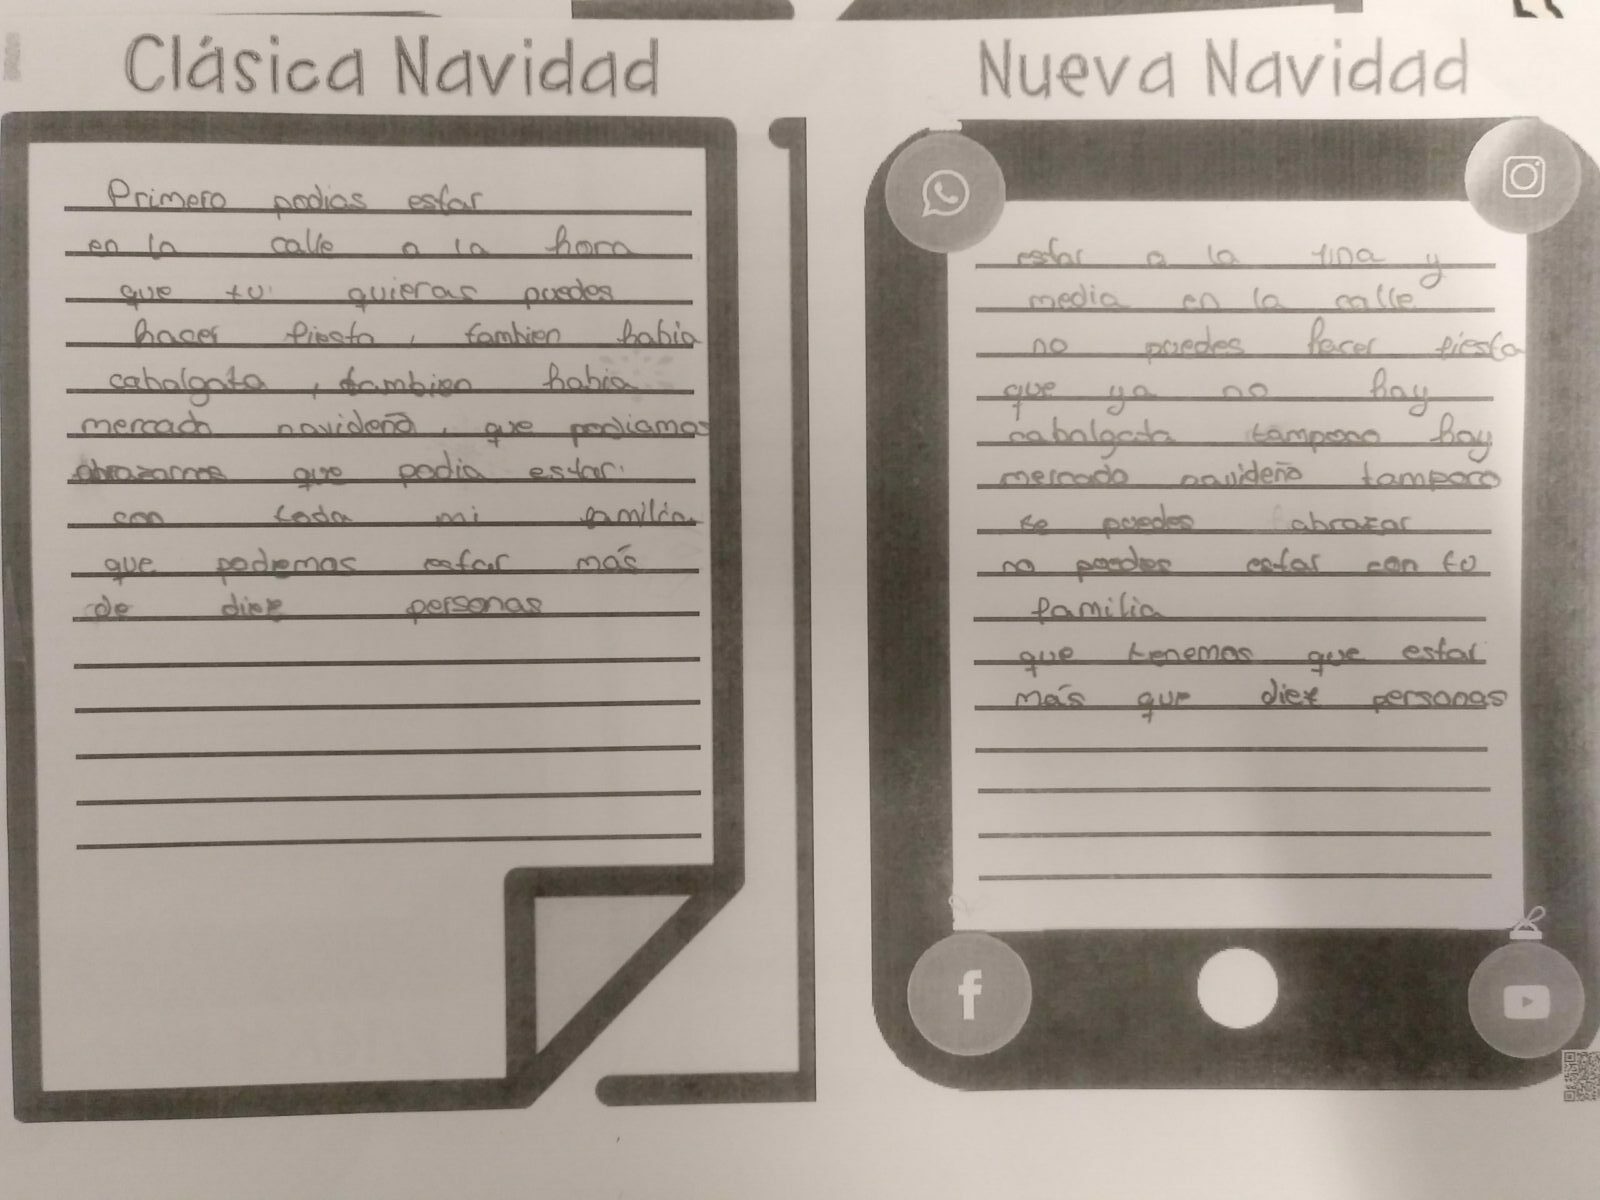 Clásica Navidad
Primero podias estar
en la calle a la hora
que tu quieras puedes
hacer fiesta, tambien habia
cabalgata, tambien habia
mercado navideño, que podiamos
abrazarnos que podia estar
con toda mi familia
que podemos estar más
de diez personas
Nueva Navidad
estar a la una y
media en la calle
no puedes hacer fiesta
que ya no hay
cabalgata tampoco hay
mercado navideño tampoco
te puedes abrazar
no puedes estar con tu
familia
que tenemos que estar
más que diez personas